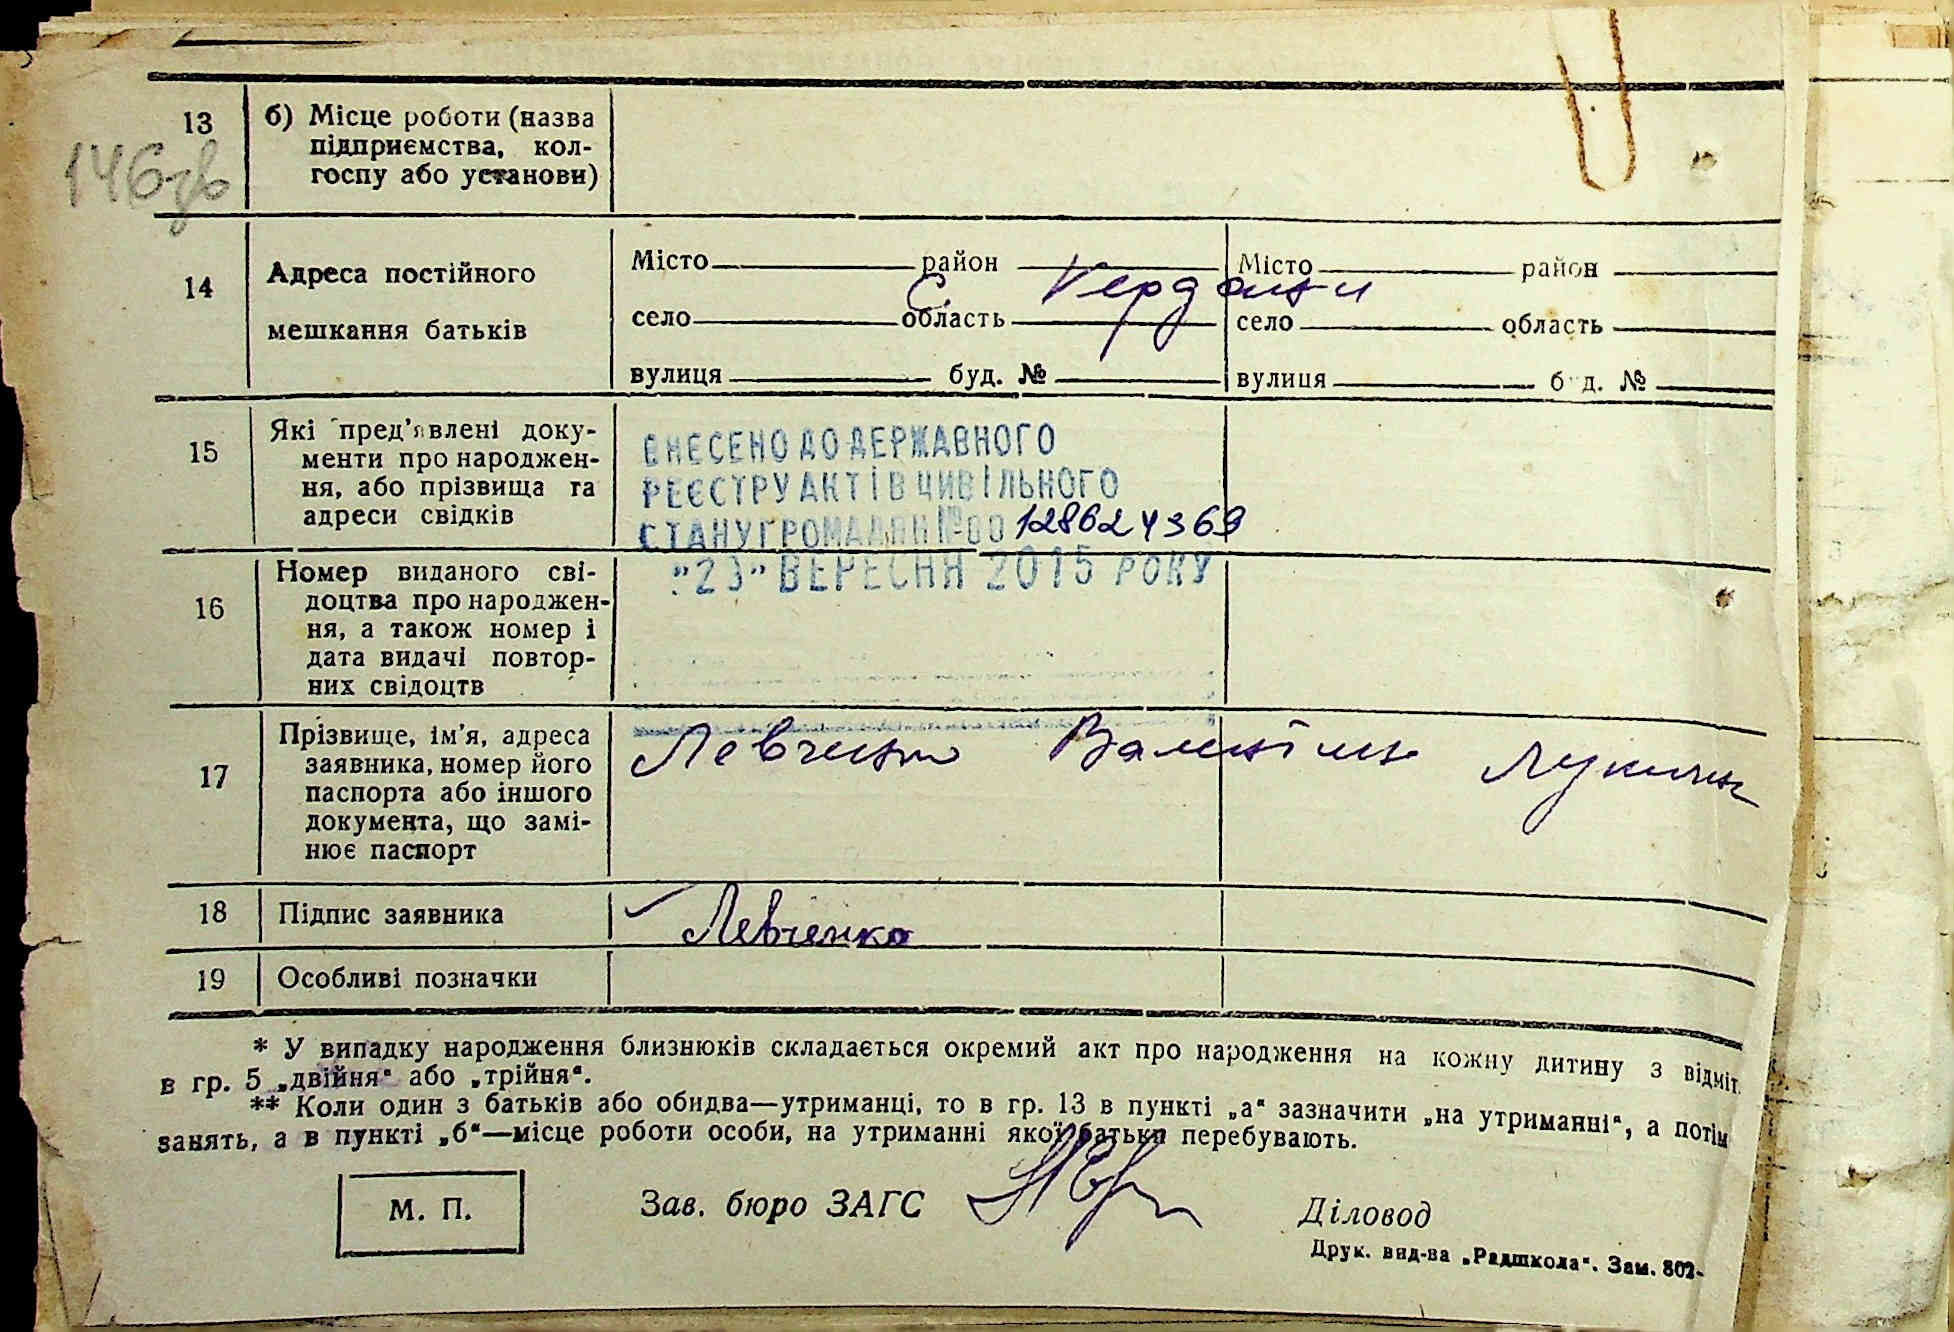 13 б) Місце роботи (назва
підприємства, кол-
госпу або установи)
146 зв
14 Адреса постійного
мешкання батьків
Місто район
С. Кердани
село область
вулиця буд. №
Місто район
село область
вулиця буд. №
15 Які пред'явлені доку-
менти про народжен-
ня, або прізвища та
адреси свідків
ВНЕСЕНО ДО ДЕРЖАВНОГО
РЕЄСТРУ АКТІВ ЦИВІЛЬНОГО
СТАНУ ГРОМАДЯН №00128624369
"23" ВЕРЕСНЯ 2015 РОКУ
16 Номер виданого сві-
доцтва про народжен-
ня, а також номер і
дата видачі повтор-
них свідоцтв
17 Прізвище, ім'я, адреса
заявника, номер його
паспорта або іншого
документа, що замі-
нює паспорт
Левченко
18 Підпис заявника Левченко
19 Особливі позначки
* У випадку народження близнюків складається окремий акт про народження на кожну дитину з відміт.
в гр. 5 „двійня“ або „трійня“.
** Коли один з батьків або обидва—утриманці, то в гр. 13 в пункті „а“ зазначити „на утриманні“, а потім
занять, а в пункті „б“—місце роботи особи, на утриманні якої батьки перебувають.
М. П. Зав. бюро ЗАГС Діловод
Друк. вид-ва „Радшкола“. Зам. 802-